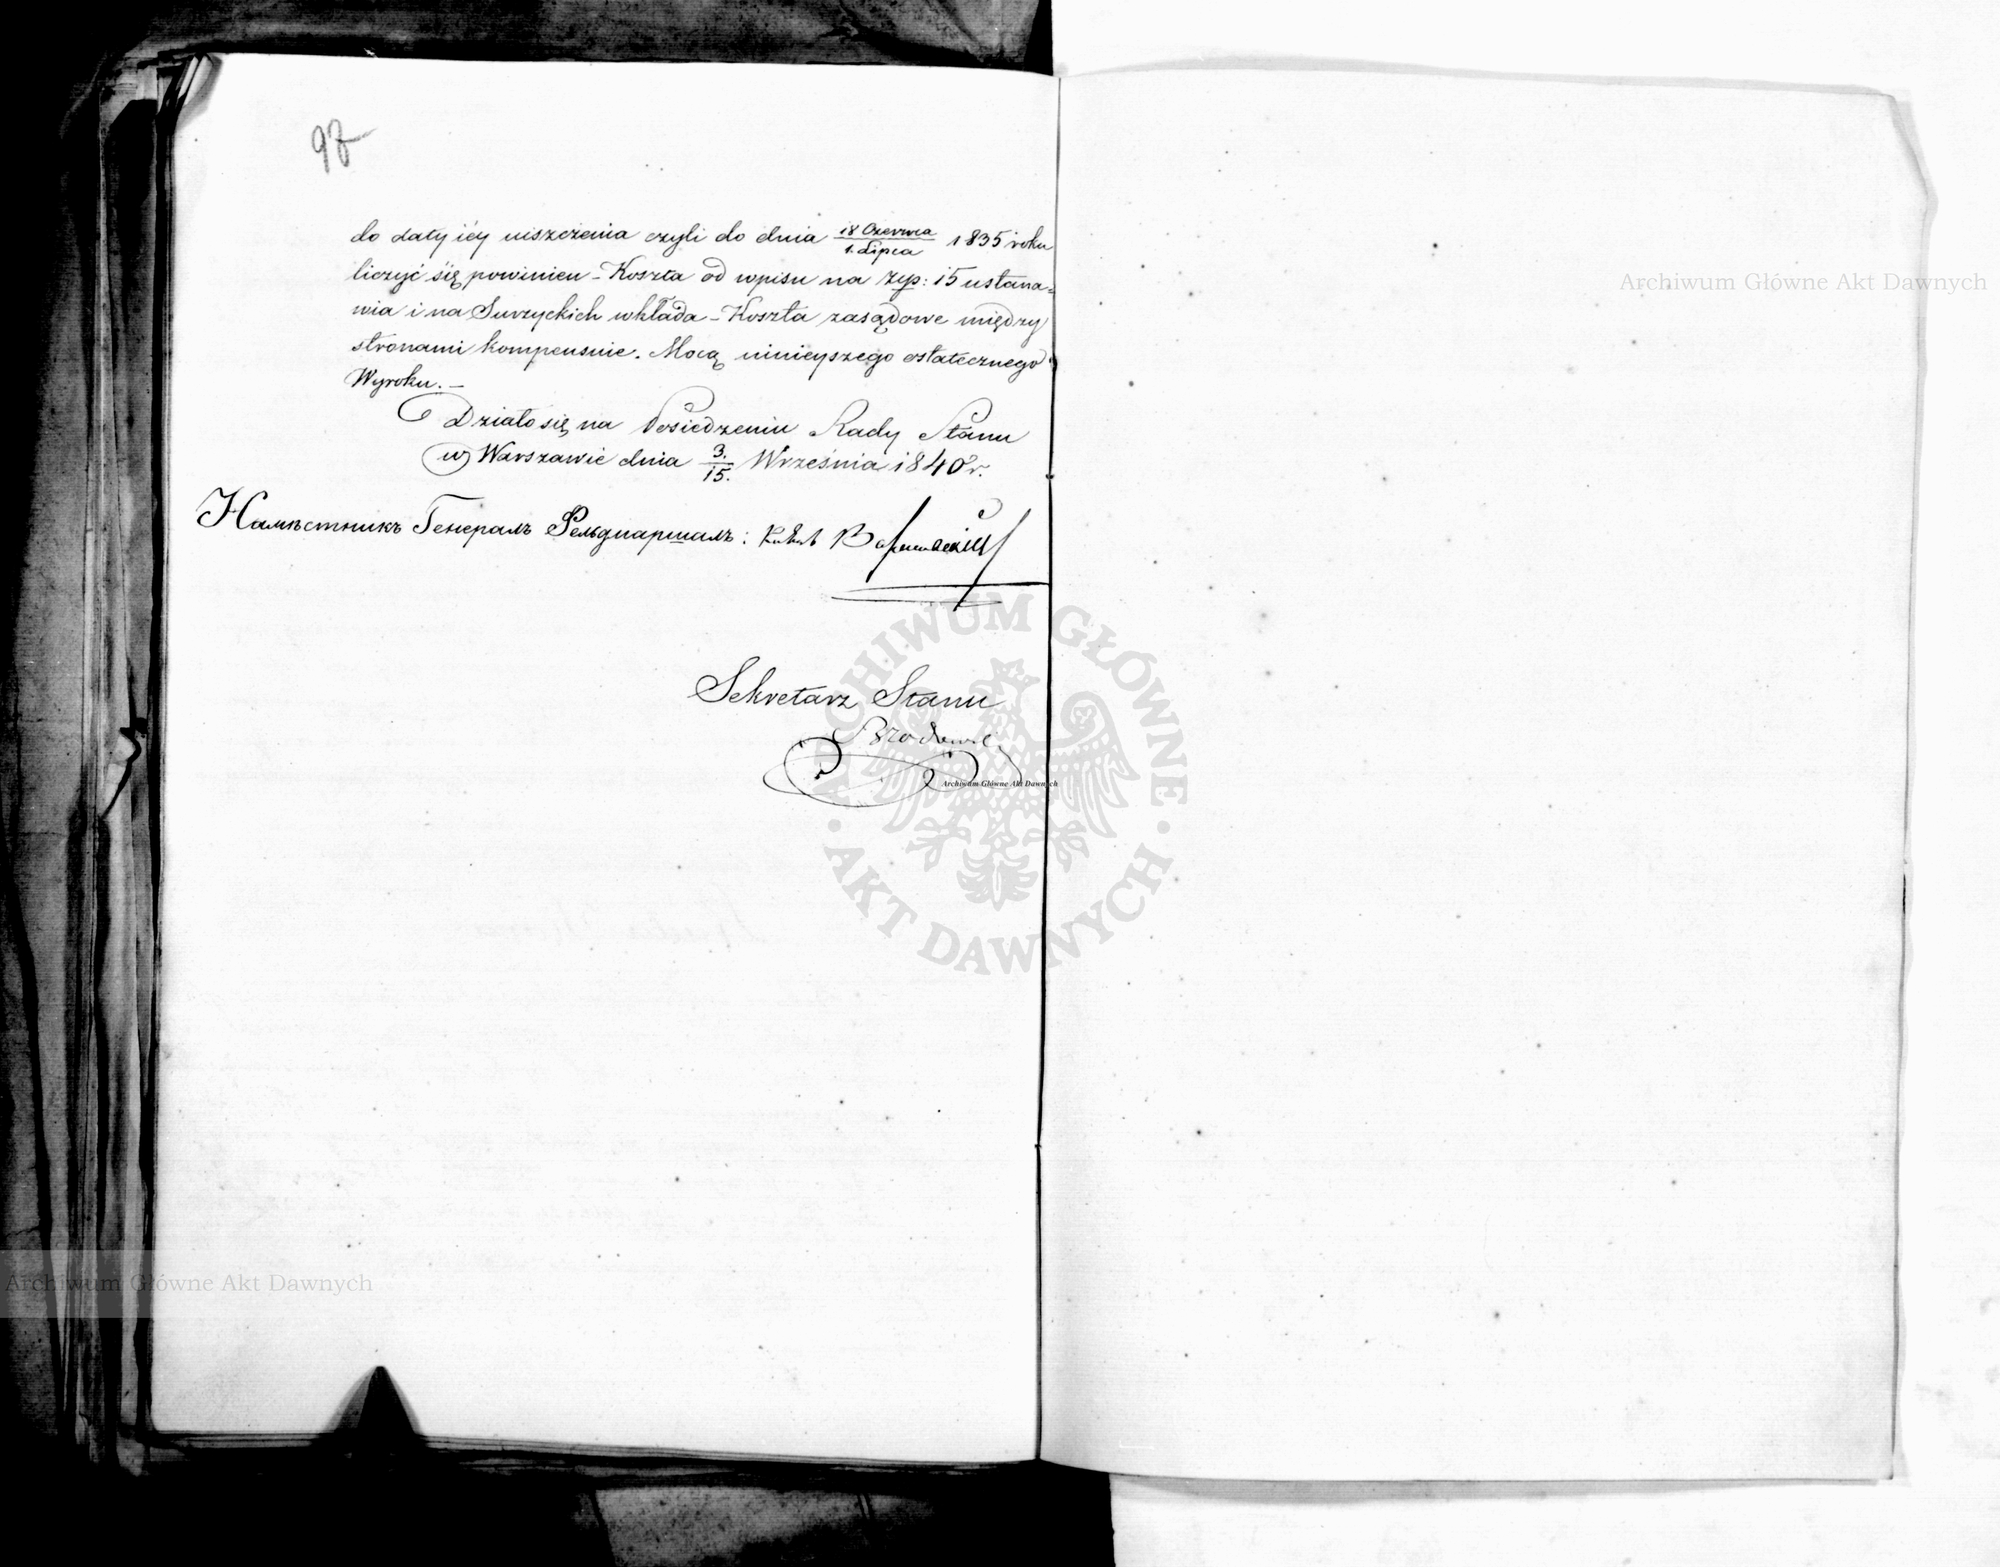 98
do daty iéy uiszczenia czyli do dnia 18 Czerwca / 1. Lipca 1835 roku
liczyć się powinien - Koszta od wpisu na Złp: 15 ustana-
wia i na Surzyckich wkłada - Koszta zasądowe między
stronami kompensuie. Mocą ninieyszego ostatecznego
Wyroku. -
Działo się na Posiedzeniu Rady Stanu
w Warszawie dnia 3. / 15. Września 1840 r.
Намѣстникъ Генералъ Фельдмаршалъ: Князь Варшавскій
Sekretarz Stanu
Archiwum Główne Akt Dawnych
Archiwum Główne Akt Dawnych
Archiwum Główne Akt Dawnych
ARCHIWUM GŁÓWNE
· AKT DAWNYCH ·